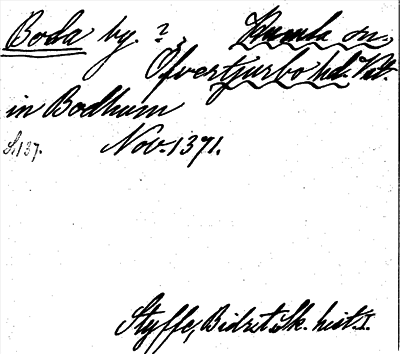 Boda by. ?, Kumla sn.,
Öfvertjurbo hd. Vstl.
in Bodhum
S. 137. Nov. 1371.
Styffe, Bidr. t. Sk. hist. I.